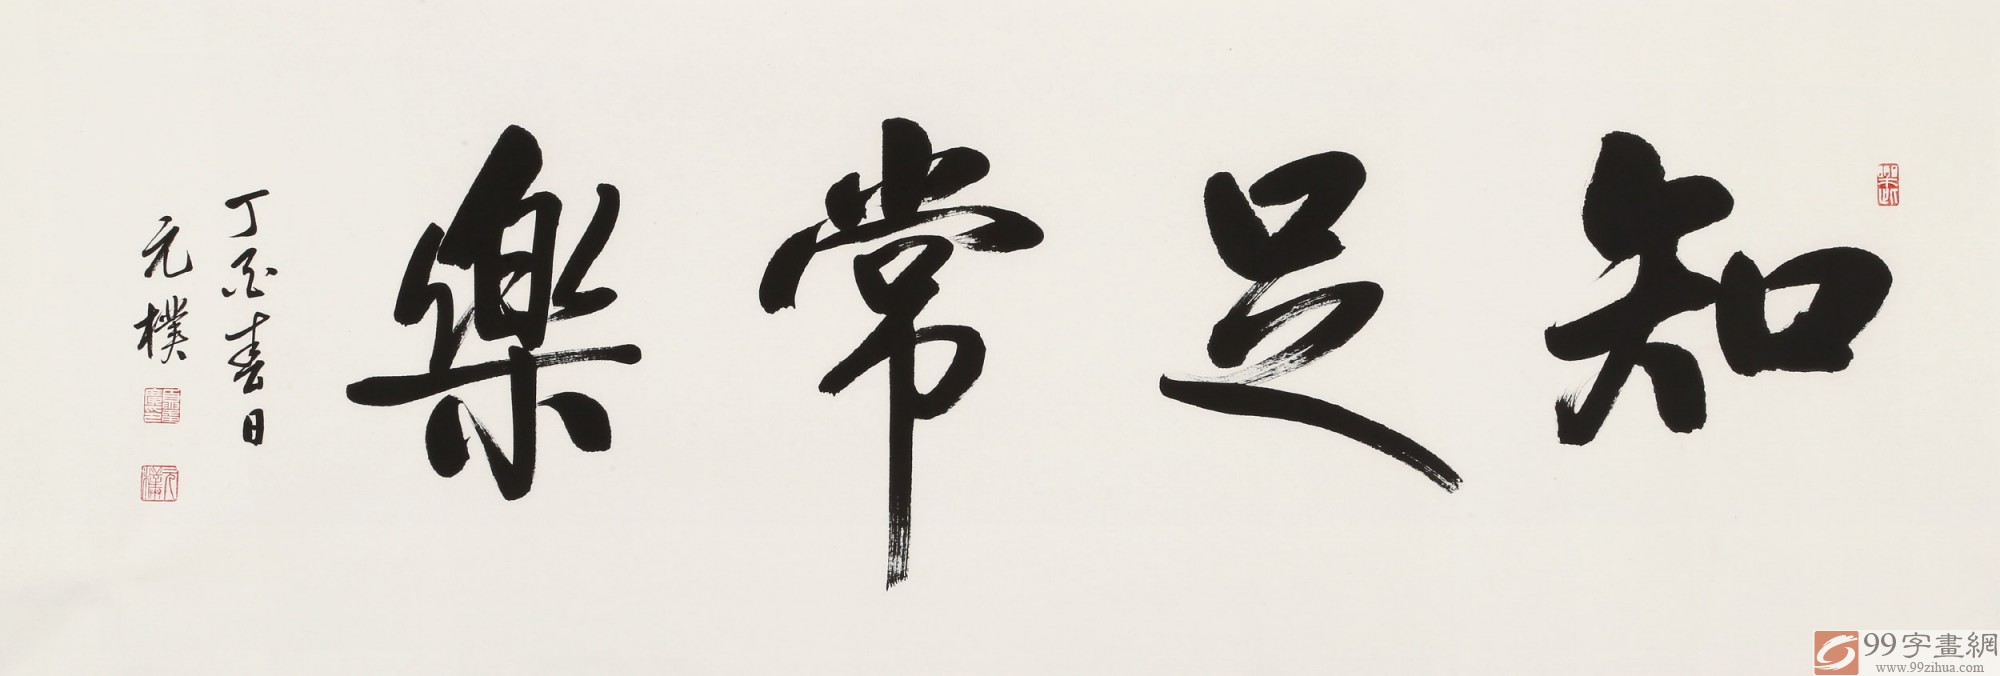 知足常樂
丁酉春日
元樸
99字畫網
www.99zihua.com